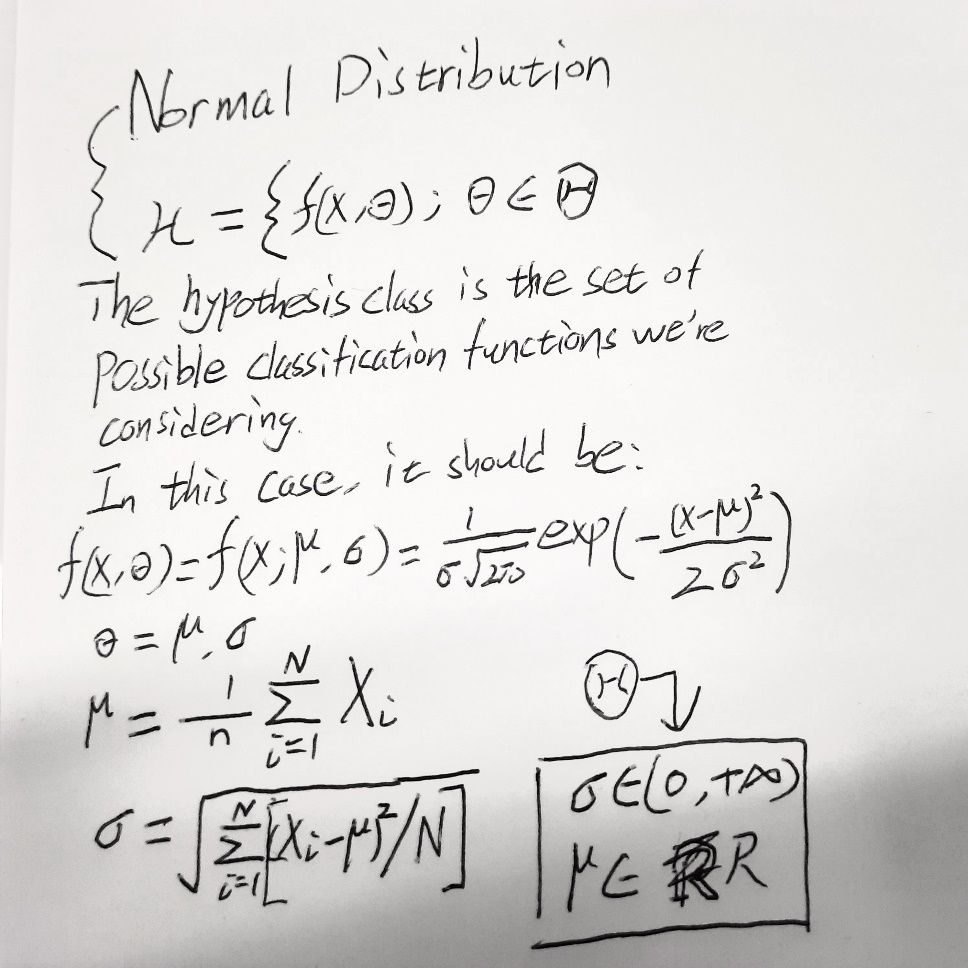 Normal Distribution
H = {f(x,θ); θ ∈ Θ
The hypothesis class is the set of
possible classification functions we're
considering.
In this case, it should be:
f(x,θ)=f(x;μ,σ)= 1/(σ√2π) exp(-(x-μ)²/2σ²)
θ = μ,σ
μ = 1/n ∑_{i=1}^{N} X_i
σ = √(∑_{i=1}^{N} [(X_i-μ)²/N])
Θ
σ∈(0,+∞)
μ∈ R